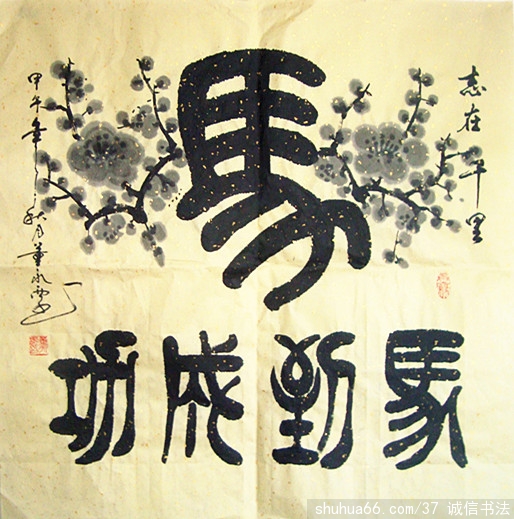 志在千里
馬
馬到成功
甲午年秋月董永
shuhua66.com/37 诚信书法